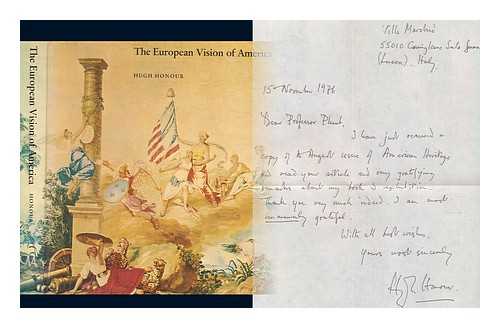 The European Vision of America
HONOUR
The European Vision of America
HUGH HONOUR
Villa Marchiò
55010
(Lucca). Italy.
15 November 1976
Dear Professor Plumb,
I have just received a
copy of the August issue of American Heritage
and read your article and very gratifying
remarks about my book & exhibition.
Thank you very much indeed. I am most
immensely grateful.
With all best wishes,
Yours most sincerely
Hugh Honour.